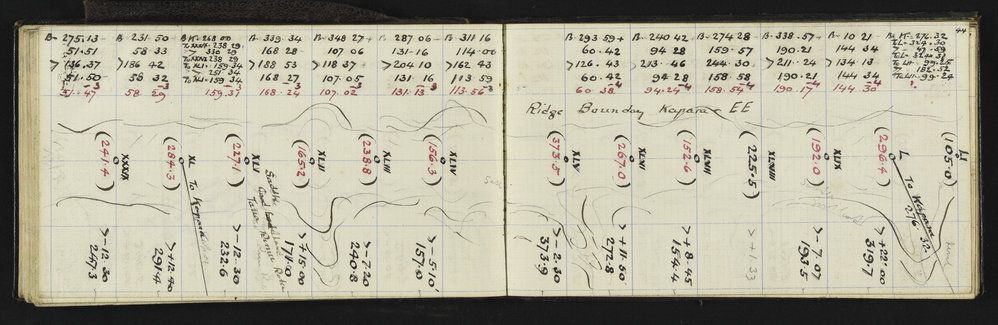 B- 275.13-
51.51
> 136.37
51.50
-3
51.47
B 231 50
58 33
> 186 42
58 32
-3
58. 29
B K- 268 00
To XXXIX- 238 29
> 330 29
To XXXIX 238 29
To XLI- 159.34
> 251 34
To XLI- 159.34
-3
159.31
B- 339.34
168 28-
> 188 53
168 27
-3
168.24
B- 348 27+
107 06
> 118 37
107 05
-3
107.02
B- 287 06-
131-16
> 204 10
131 16
-3
131.13
B- 311 16
114.00
> 162 43
113 59
-3
113.56
44
B 293 59+
60.42
> 126.43
60.42
-4
60.38
B 240 42
94 28
> 213.46
94 28
-4
94.24
B- 274 28
159.57
244 30
158 58
-4
158.54
B- 338.57+
190.21
> 211.24
190.21
-4
190.17
B- 10 21
144 34
> 134.13
144 34
-4
144 30
Ridge Boundary Kapara EE
(241.4)
XXXIX
>-12.30
247.3
(284.3)
XL
>+12.40
291.4
To Kapara
(227.1)
XLI
>-12.30
232.6
(165.2)
XLII
>+15.00
171.0
Saddle
(238.8)
XLIII
>-7.20
240.8
(156.3)
XLIV
>-5.10
157.0
(373.5)
XLV
>-2.30
373.9
(267.0)
XLVI
>+11.50
272.8
(152.6)
XLVII
>+8.45
154.4
(225.5)
XLVIII
>+1.33
(192.0)
XLIX
>-7.07
193.5
(296.4)
L
>+22.00
319.7
To Kapara
276.32
(105.0)
LI